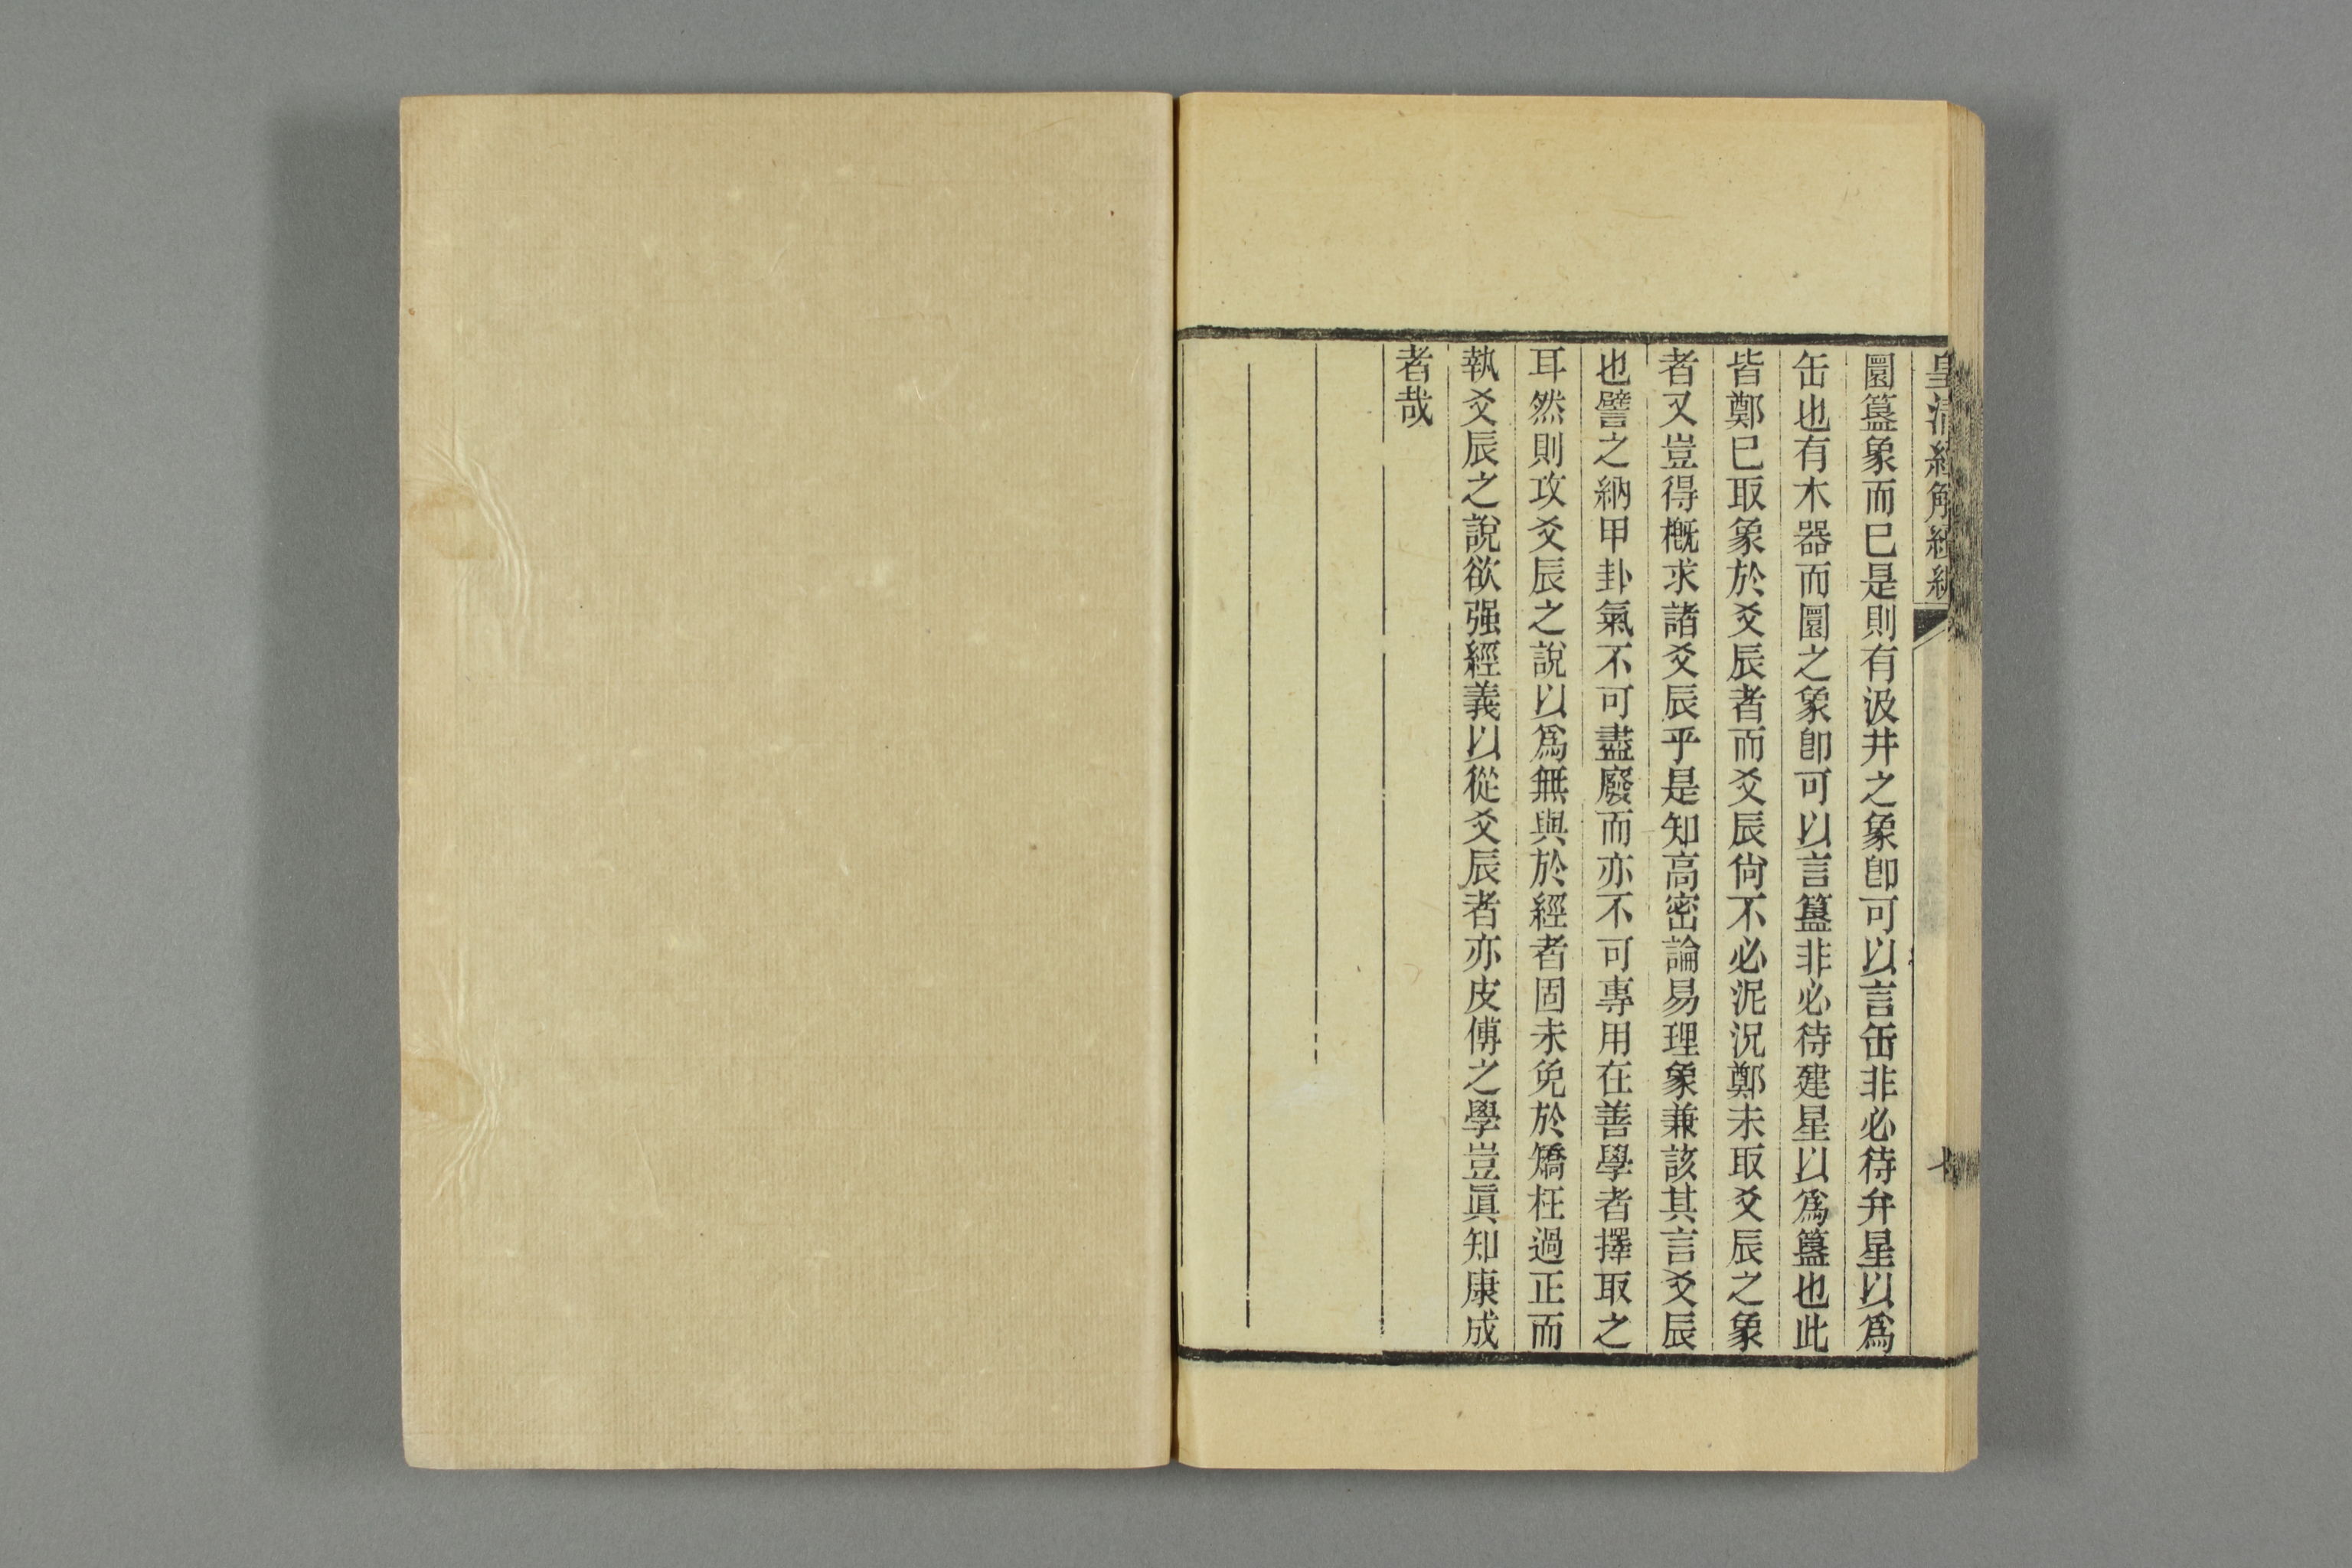 皇清經解續編
圜簋象而巳是則有汲井之象卽可以言缶非必待弁星以爲
缶也有木器而圜之象卽可以言簋非必待建星以爲簋也此
皆鄭巳取象於爻辰者而爻辰尙不必泥況鄭未取爻辰之象
者又豈得槪求諸爻辰乎是知高密論易理象兼該其言爻辰
也譬之納甲卦氣不可盡廢而亦不可專用在善學者擇取之
耳然則攻爻辰之說以爲無與於經者固未免於矯枉過正而
執爻辰之說欲强經義以從爻辰者亦皮傅之學豈眞知康成
者哉